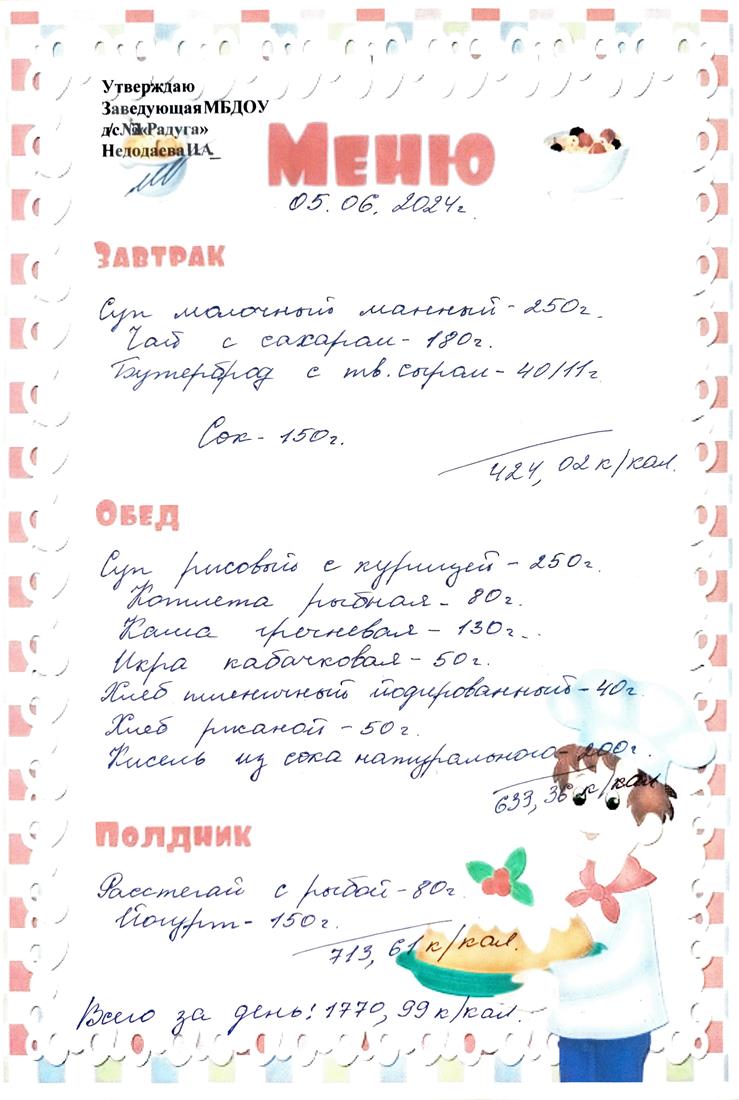 Утверждаю
Заведующая МБДОУ
д/с «Радуга»
Недодаева И.А_
Меню
05.06.2024г.
Завтрак
Суп молочный манный - 250г.
Чай с сахаром - 180г.
Бутерброд с тв. сыром - 40/11г
Сок - 150г.
424,02 к/кал.
Обед
Суп рисовый с курицей - 250г.
Котлета рыбная - 80г.
Каша гречневая - 130г.
Икра кабачковая - 50г.
Хлеб пшеничный йодированный - 40г.
Хлеб ржаной - 50г.
Кисель из сока натурального - 200г.
633,36 к/кал
Полдник
Расстегай с рыбой - 80г.
Йогурт - 150г.
713,61 к/кал.
Всего за день: 1770,99 к/кал.